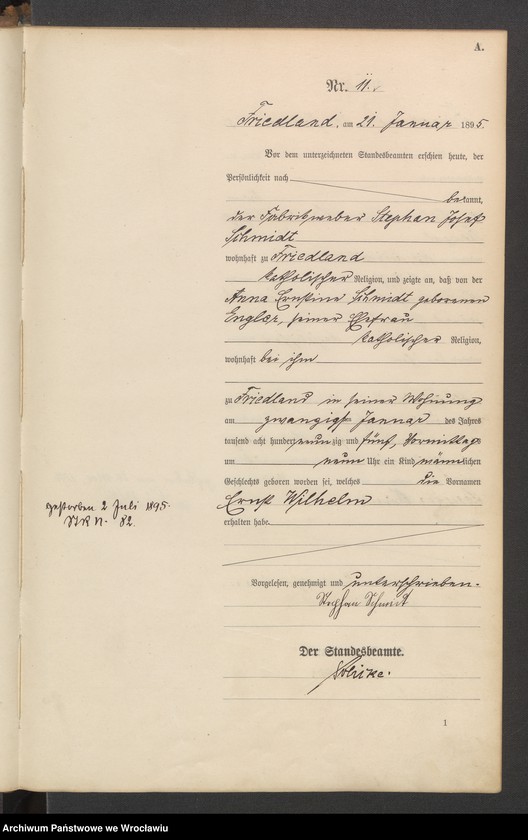 A.
Nr. 11.
Friedland, am 21. Januar 1895.
Vor dem unterzeichneten Standesbeamten erschien heute, der
Persönlichkeit nach
bekannt,
der Fabrikweber Stephan Josef
Schmidt
wohnhaft zu Friedland
katholischer Religion, und zeigte an, daß von der
Anna Ernstine Schmidt geborenen
Engler, seiner Ehefrau
katholischer Religion,
wohnhaft bei ihm
zu Friedland in seiner Wohnung
am zwanzigsten Januar des Jahres
tausend acht hundert neunzig und fünf, Vormittags
um neun Uhr ein Kind männlichen
Geschlechts geboren worden sei, welches die Vornamen
Ernst Wilhelm
erhalten habe.
gestorben 2 Juli 1895.
N. 82.
Vorgelesen, genehmigt und unterschrieben.
Stephan Schmidt
Der Standesbeamte.
1
Archiwum Państwowe we Wrocławiu